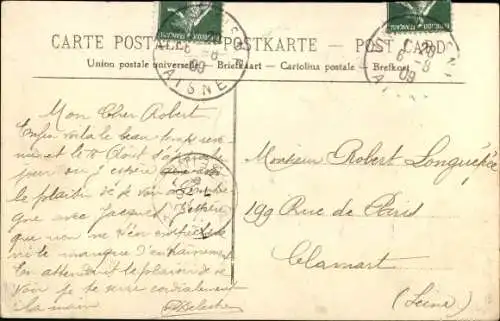 CARTE POSTALE — POSTKARTE — POST CARD
Union postale universelle — Briefkaart — Cartolina postale — Brefkort
AISNE
6-8
09
6-8
09
Mon Cher Robert
Enfin voilà le beau temps reve-
nu et le 8 Août
jour où j'espère
le plaisir de te voir
avec Jacques J'espère
que non ne s'en
ni le manque d'entrainement
En attendant le plaisir de te
voir je te serre cordialement
la main
Monsieur Robert Longuépée
199 Rue de Paris
Clamart
(Seine)